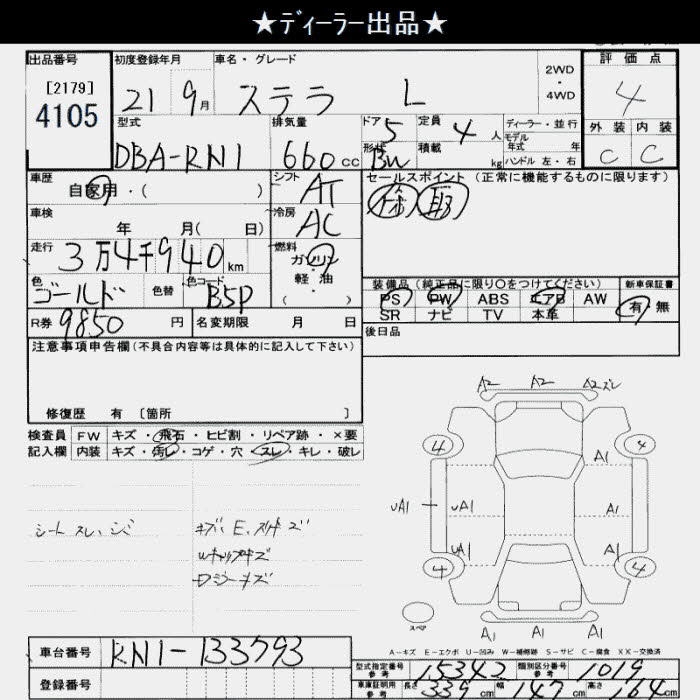 ★ディーラー出品★
出品番号
[2179]
4105
初度登録年月
21 9月
車名・グレード
ステラ L
2WD
・
4WD
評価点
4
外装 内装
C C
型式
DBA-RN1
排気量
660cc
ドア 5
形状 BW
定員 4人
積載 kg
ディーラー・並行
モデル
年式 年
ハンドル 左・右
車歴
自家用・( )
シフト
AT
セールスポイント (正常に機能するものに限ります)
車検
年 月( 日)
冷房
AC
走行
3万4千940km
燃料
ガソリン
・
軽油
・
( )
色
ゴールド
色替
色コード
B5P
R券 9850円
名変期限 月 日
装備品(純正品に限り○をつけてください)
PS PW ABS エアB AW
SR ナビ TV 本革
新車保証書
有・無
後日品
注意事項申告欄(不具合内容等は具体的に記入して下さい)
修復歴 有 [箇所 ]
検査員
記入欄
FW キズ・飛石・ヒビ割・リペア跡・×要
内装 キズ・汚レ・コゲ・穴・スレ・キレ・破レ
シートスレ、シミ
A2 A2 A2スレ
4 4
A1 A1
UA1 UA1 A1
UA1 A1
4 4
スペア
A1 A1 A1
A-キズ E-エクボ U-凹み W-補修跡 S-サビ C-腐食 XX-交換済
車台番号 RN1-133793
登録番号
型式指定番号
参考
15342
類別区分番号
参考
1019
車庫証明用
参考
長さ 339cm 幅 147cm 高さ 164cm